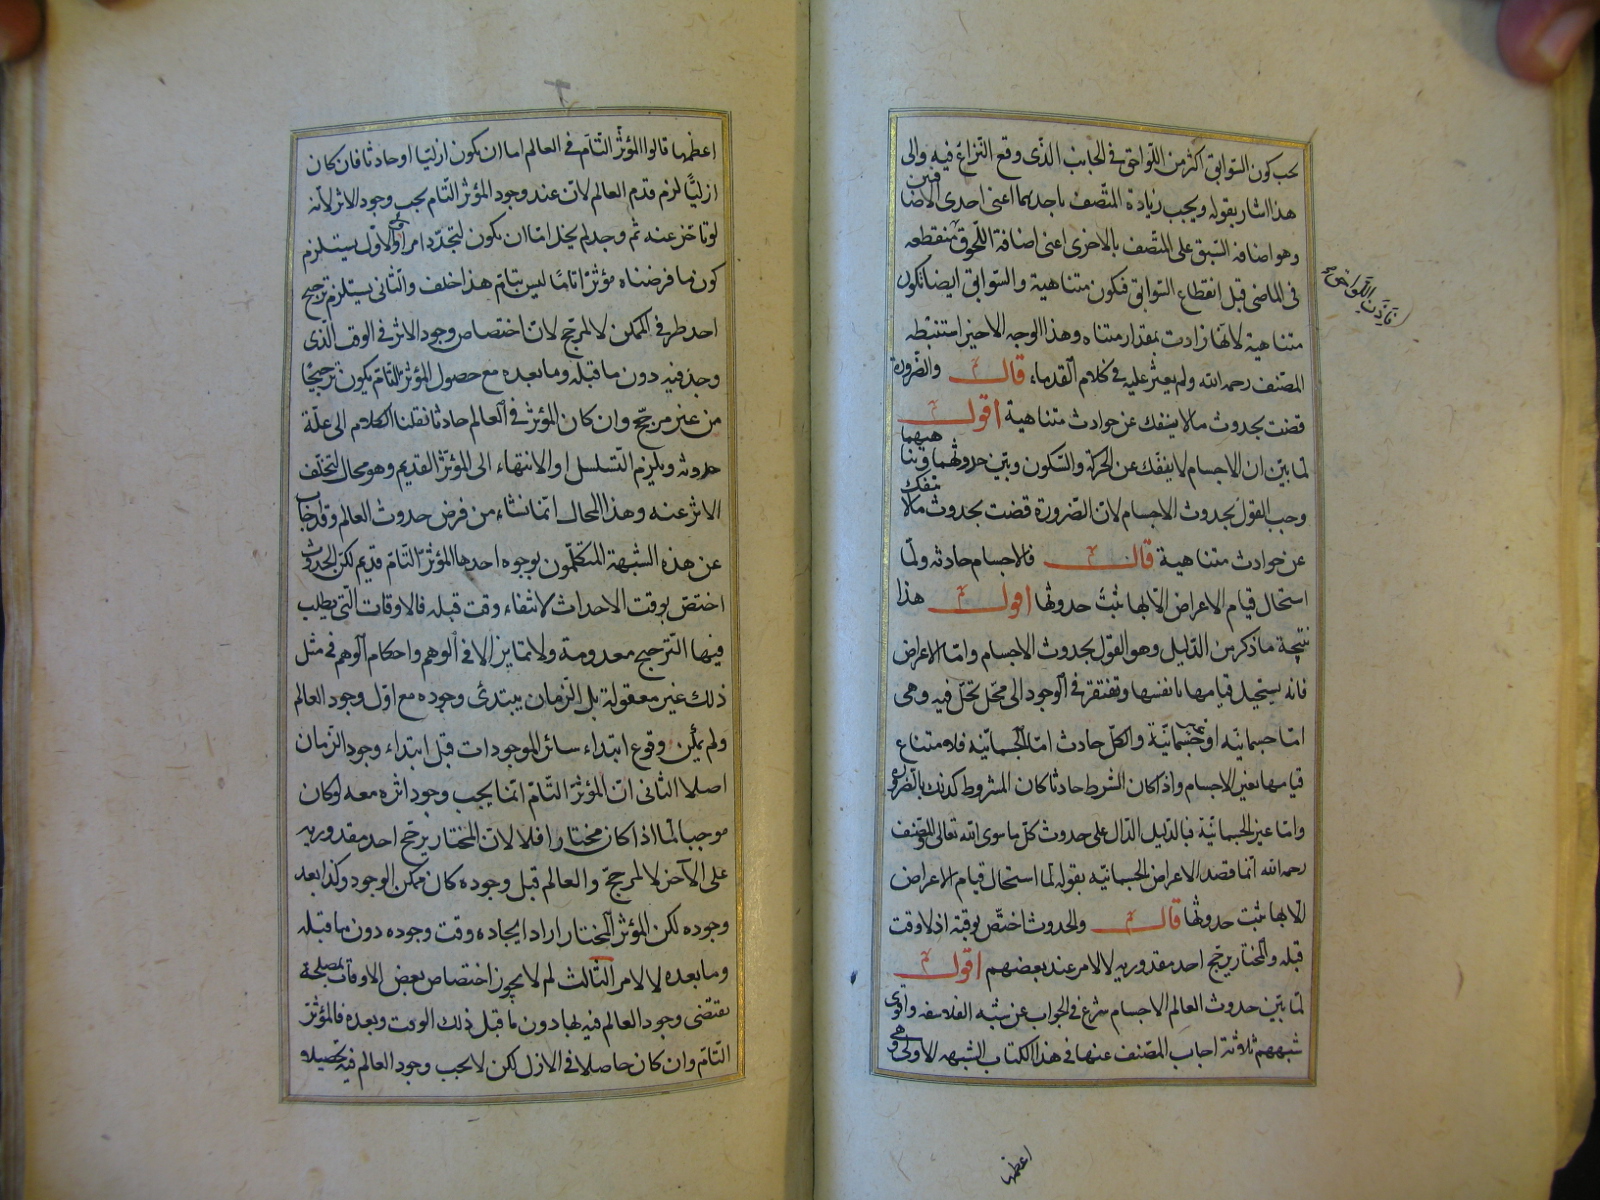 يجب كون السوابق اكثر من اللواحق فى الجانب الذى وقع النزاع فيه والى
هذا اشار بقوله ويجب زيادة المتصف باحديهما اعنى احدى الاضافتين
وهو اضافه السبق على المتصف بالاخرى اعنى اضافة اللحوق منقطعه
فى الماضى قبل انقطاع السوابق فتكون متناهية والسوابق ايضا تكون
متناهية لانها زادت بمقدار متناه وهذا الوجه الاخير استنبطه
المصنف رحمه الله ولم يعثر عليه فى كلام القدماء قال والضرورة
قضت بحدوث ما لا ينفك عن حوادث متناهية اقول
لما بين ان الاجسام لا ينفك عن الحركة والسكون وبين حدوثهما وتناهيهما
وجب القول بحدوث الاجسام لان الضرورة قضت بحدوث ما لا ينفك
عن حوادث متناهية قال فالاجسام حادثه ولما
استحال قيام الاعراض الا بها ثبت حدوثها اقول هذا
نتيجة ما ذكر من الدليل وهو القول بحدوث الاجسام واما الاعراض
فانه يستحيل قيامها بانفسها وتفتقر فى الوجود الى محل تحل فيه وهى
اما جسمانيه او غير جسمانية والكل حادث اما الجسمانيه فلامتناع
قيامها بغير الاجسام واذا كان الشرط حادثا كان المشروط كذلك بالضرورة
واما غير الجسمانية فبالدليل الدال على حدوث كل ما سوى الله تعالى والمصنف
رحمه الله انما قصد الاعراض الجسمانيه بقوله لما استحال قيام الاعراض
الا بها ثبت حدوثها قال والحدوث اختص بوقته اذ لا وقت
قبله والمختار يرجح احد مقدوريه لا لامر عند بعضهم اقول
لما بين حدوث العالم الاجسام شرع فى الجواب عن شبه الفلاسفه واقوى
شبههم ثلاثة اجاب المصنف عنها فى هذا الكتاب الشبهه الاولى وهى
اعظمها
اعظمها قالوا المؤثر التام فى العالم اما ان يكون ازليا او حادثا فان كان
ازليا لزم قدم العالم لان عند وجود المؤثر التام يجب وجود الاثر لانه
لو تاخر عنه ثم وجد لم يخل اما ان يكون لتجدد امر اولا والاول يستلزم
كون ما فرضناه مؤثرا تاما ليس بتام هذا خلف والثانى يستلزم ترجيح
احد طرفى الممكن لا لمرجح لان اختصاص وجود الاثر فى الوقت الذى
وجد فيه دون ما قبله وما بعده مع حصول المؤثر التام يكون ترجيحا
من غير مرجح وان كان المؤثر فى العالم حادثا نقلنا الكلام الى علة
حدوثه ويلزم التسلسل او الانتهاء الى المؤثر القديم وهو محال لتخلف
الاثر عنه وهذا المحال انما نشاء من فرض حدوث العالم وقد اجاب
عن هذه الشبهة المتكلمون بوجوه احدها المؤثر التام قديم لكن الحدوث
اختص بوقت الاحداث لانتفاء وقت قبله فالاوقات التى يطلب
فيها الترجيح معدومة ولا تمايز الا فى الوهم واحكام الوهم فى مثل
ذلك غير معقولة بل الزمان يبتدئ وجوده مع اول وجود العالم
ولم يمكن وقوع ابتداء سائر الموجودات قبل ابتداء وجود الزمان
اصلا الثانى ان المؤثر التام انما يجب وجود اثره معه لو كان
موجبا لما اذا كان مختارا فلا لان المختار يرجح احد مقدوريه
على الآخر لا لمرجح والعالم قبل وجوده كان ممكن الوجود وكذا بعد
وجوده لكن المؤثر المختار اراد ايجاده وقت وجوده دون ما قبله
وما بعده لا لامر الثالث لم لا يجوز اختصاص بعض الاوقات بمصلحة
تقتضى وجود العالم فيه لها دون ما قبل ذلك الوقت وبعده فالمؤثر
التام وان كان حاصلا فى الازل لكن لا يجب وجود العالم فيه تحصيلا